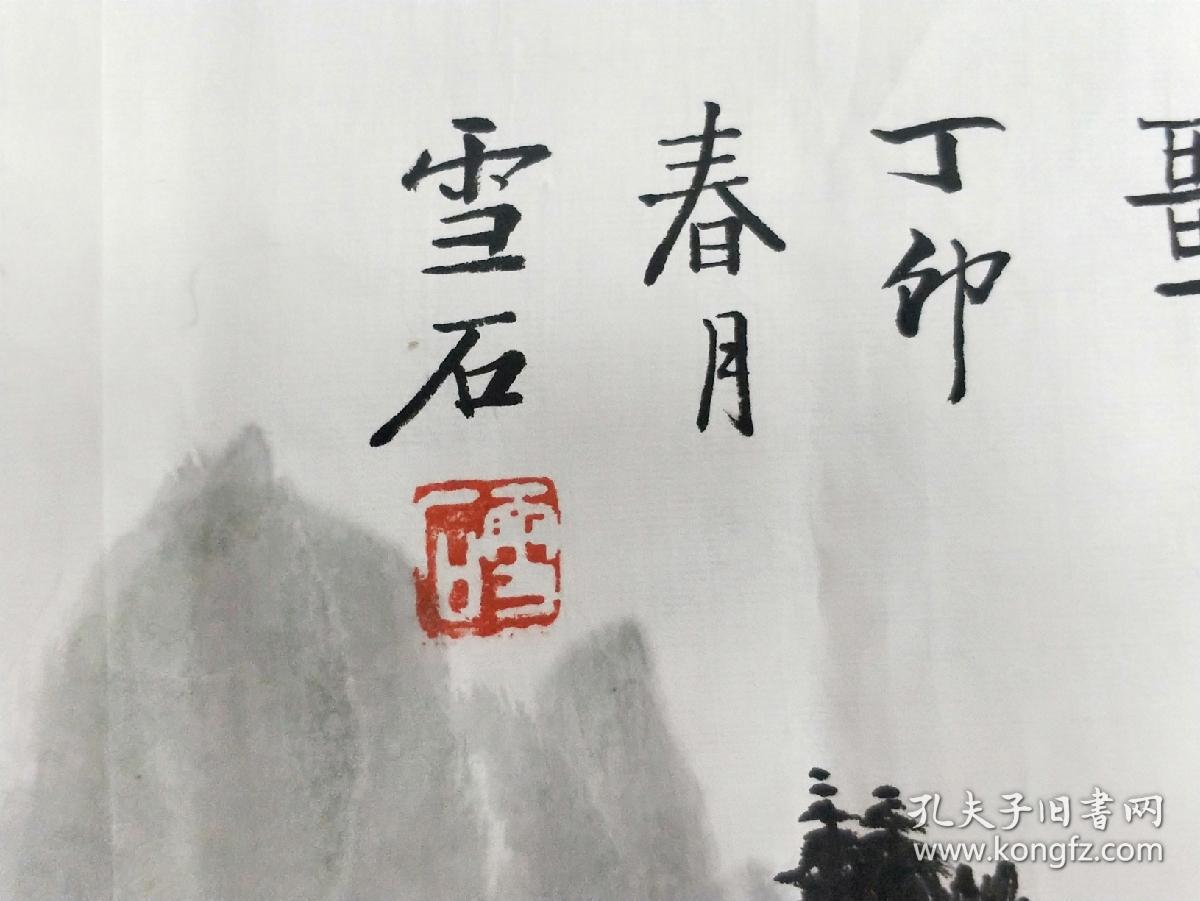 丁卯
春月
雪石
雪石
孔夫子旧书网
www.kongfz.com